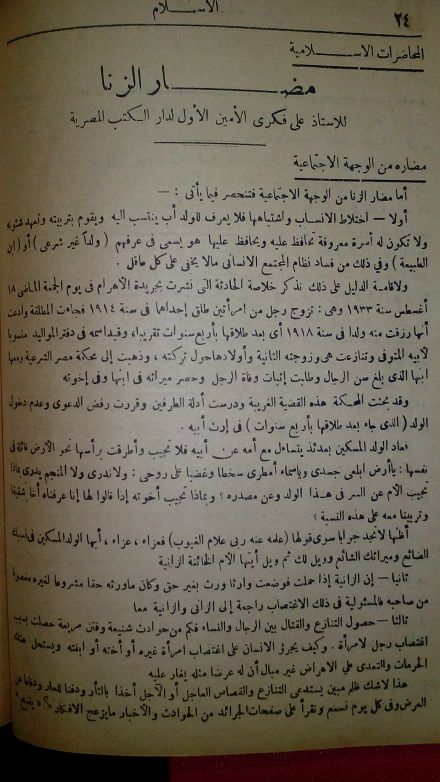 الاسلام
٢٤
المحاضرات الاسلامية
مضار الزنا
للاستاذ على فكرى الأمين الأول لدار الكتب المصرية
مضاره من الوجهة الاجتماعية
أما مضار الزنا من الوجهة الاجتماعية فتنحصر فيما يأتى : —
أولا — اختلاط الانساب واشتباهها فلا يعرف للولد أب ينتسب اليه ويقوم بتربيته وتعهد شئونه
ولا تكون له أسرة معروفة تحافظ عليه ويحافظ عليها هو يسمى فى عرفهم ( ولداً غير شرعى ) أو ( ابن
الطبيعة ) وفى ذلك من فساد نظام المجتمع الانسانى مالا يخفى على كل عاقل .
ولاقامة الدليل على ذلك نذكر خلاصة الحادثة التى نشرت بجريدة الاهرام فى يوم الجمعة الماضى ١٨
أغسطس سنة ١٩٣٣ وهى : تزوج رجل من امرأتين طلق إحداهما فى سنة ١٩١٤ فجاءت المطلقة وادعت
أنها رزقت منه ولدا فى سنة ١٩١٨ أى بعد طلاقها بأربع سنوات تقريباء وقيد اسمه فى دفتر المواليد منسوبا
لأبيه المتوفى وتنازعت هى وزوجته الثانية وأولادها حول تركته ، وذهبت إلى محكمة مصر الشرعية ومعها
ابنها الذى بلغ سن الرجال وطلبت إثبات وفاة الرجل وحصر ميراثه فى ابنها وفى إخوته
وقد بحثت المحكمة هذه القضية الغريبة ودرست أدلة الطرفين وقررت رفض الدعوى وعدم دخول
الولد ( الذى جاء بعد طلاقها بأربع سنوات ) فى إرث أبيه .
فعاد الولد المسكين بعدئذ يتساءل مع أمه عن أبيه فلا تجيب وأطرقت برأسها نحو الأرض قائلة فى
نفسها : ياأرض ابلعى جسدى وياسماء أمطرى سخطا وغضبا على روحى : ولا ندرى ولا المنجم يدرى بماذا
تجيب الأم عن السر فى هذا الولد وعن مصدره ؟ وبماذا تجيب أخوته إذا قالوا لها إنا عرفناه أخا شقيقا
وتربينا معه على هذه النسبة ؟
أظنها لاتجد جوابا سوى قولها (علمه عنه ربى علام الغيوب) فعزاء ، عزاء ، أيها الولد المسكين فى نسبك
الضائع وميراثك الشائع وويل لك ثم ويل أيتها الأم الخائنة الزانية
ثانيا — إن الزانية إذا حملت فوضعت وارثا ورث بغير حق وكان ماورثه حقا مشروعا لغيره مغصوبا
من صاحبه فالمسئولية فى ذلك الاغتصاب راجعة إلى الزانى والزانية معا
ثالثا — حصول التنازع والقتال بين الرجال والنساء فكم من حوادث شنيعة وفتن مريعة حصلت بسبب
اغتصاب رجل لامرأة . وكيف يجرؤ الانسان على اغتصاب امرأة غيره أو أخته أو ابنته ويستحل هتك
الحرمات والتعدى على الاعراض غير مبال أن له عرضا مثله يغار عليه
هذا لاشك ظلم مبين يستدعى التنازع والقصاص العاجل أو الآجل أخذا بالثأر ودفنا للعار ودفاعا عن
العرض وفى كل يوم نسمع ونقرأ على صفحات الجرائد من الحوادث والأخبار مايزعج الافكار